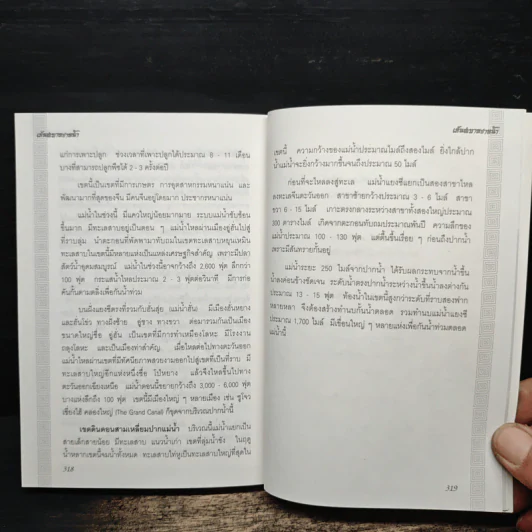 แก่การเพาะปลูก ช่วงเวลาที่เพาะปลูกได้ประมาณ 8 - 11 เดือน
บางที่สามารถปลูกพืชได้ 2 - 3 ครั้งต่อปี
เขตนี้เป็นเขตที่มีการเกษตร การอุตสาหกรรมหนาแน่น และ
พัฒนามากที่สุดของจีน มีคนจีนอยู่โดยมาก ประชากรหนาแน่น
แม่น้ำในช่วงนี้ มีแควใหญ่น้อยมากมาย ระบบแม่น้ำซับซ้อน
ขึ้นมาก มีทะเลสาบอยู่เป็นตอน ๆ แม่น้ำไหลผ่านเมืองอู่ฮั่นไปสู่
ที่ราบลุ่ม น้ำตะกอนที่พัดพามาทับถมในเขตทะเลสาบหยุนเหมิน
ทะเลสาบในเขตนี้มีหลายแห่งเป็นแหล่งเศรษฐกิจสำคัญ เพราะมีปลา
สัตว์น้ำอุดมสมบูรณ์ แม่น้ำในช่วงนี้อาจกว้างถึง 2,600 ฟุต ลึกกว่า
100 ฟุต กระแสน้ำไหลประมาณ 2 - 3 ฟุตต่อวินาที มีการก่อ
คันกั้นตามตลิ่งเพื่อกันน้ำท่วม
บนฝั่งแยงซีตรงที่รวมกับฮั่นสุ่ย แม่น้ำฮั่น มีเมืองฮั่นหยาง
และฮั่นโข่ว ทางฝั่งซ้าย อู่ชาง ทางขวา ต่อมารวมกันเป็นเมือง
ขนาดใหญ่ชื่อ อู่ฮั่น เป็นเขตที่มีการทำเหมืองโลหะ มีโรงงาน
ถลุงโลหะ และเป็นเมืองท่าสำคัญ เมื่อไหลต่อไปทางตะวันออก
แม่น้ำไหลผ่านเขตที่มีทัศนียภาพสวยงามออกไปสู่เขตที่เป็นที่ราบ มี
ทะเลสาบใหญ่อีกแห่งหนึ่งชื่อ โปหยาง แล้วจึงไหลขึ้นไปทาง
ตะวันออกเฉียงเหนือ แม่น้ำตอนนี้ขยายกว้างถึง 3,000 - 6,000 ฟุต
บางแห่งลึกถึง 100 ฟุต เขตนี้มีเมืองใหญ่ ๆ หลายเมือง เช่น ซูโจว
เซี่ยงไฮ้ คลองใหญ่ (The Grand Canal) ก็ขุดจากบริเวณปากน้ำนี้
เขตดินดอนสามเหลี่ยมปากแม่น้ำ บริเวณนี้แม่น้ำแยกเป็น
สายเล็กสายน้อย มีทะเลสาบ แนวน้ำเก่า เขตที่ลุ่มน้ำขัง ในฤดู
น้ำหลากเขตนี้จมน้ำทั้งหมด ทะเลสาบไท่หูเป็นทะเลสาบใหญ่ที่สุดใน
318
เขตนี้ ความกว้างของแม่น้ำประมาณไมล์ถึงสองไมล์ ยิ่งใกล้ปาก
น้ำแม่น้ำจะยิ่งกว้างมากขึ้นจนถึงประมาณ 50 ไมล์
ก่อนที่จะไหลลงสู่ทะเล แม่น้ำแยงซีแยกเป็นสองสาขาไหล
ลงทะเลจีนตะวันออก สาขาซ้ายกว้างประมาณ 3 - 6 ไมล์ สาขา
ขวา 6 - 15 ไมล์ เกาะตรงกลางระหว่างสาขาทั้งสองใหญ่ประมาณ
300 ตารางไมล์ เกิดจากตะกอนทับถมประมาณพันปี ความลึกของ
แม่น้ำประมาณ 100 - 130 ฟุต แต่ตื้นขึ้นเรื่อย ๆ ก่อนถึงปากน้ำ
เพราะมีสันทรายกั้นอยู่
แม่น้ำระยะ 250 ไมล์จากปากน้ำ ได้รับผลกระทบจากน้ำขึ้น
น้ำลงค่อนข้างชัดเจน ระดับน้ำตรงปากน้ำระหว่างน้ำขึ้นน้ำลงต่างกัน
ประมาณ 13 - 15 ฟุต ท้องน้ำในเขตนี้สูงกว่าระดับที่ราบสองฟาก
หลายหลา จึงต้องสร้างทำนบกั้นน้ำตลอด รวมทำนบแม่น้ำแยงซี
ประมาณ 1,700 ไมล์ มีเขื่อนใหญ่ ๆ หลายแห่งเพื่อกันน้ำท่วมตลอด
แม่น้ำนี้
319